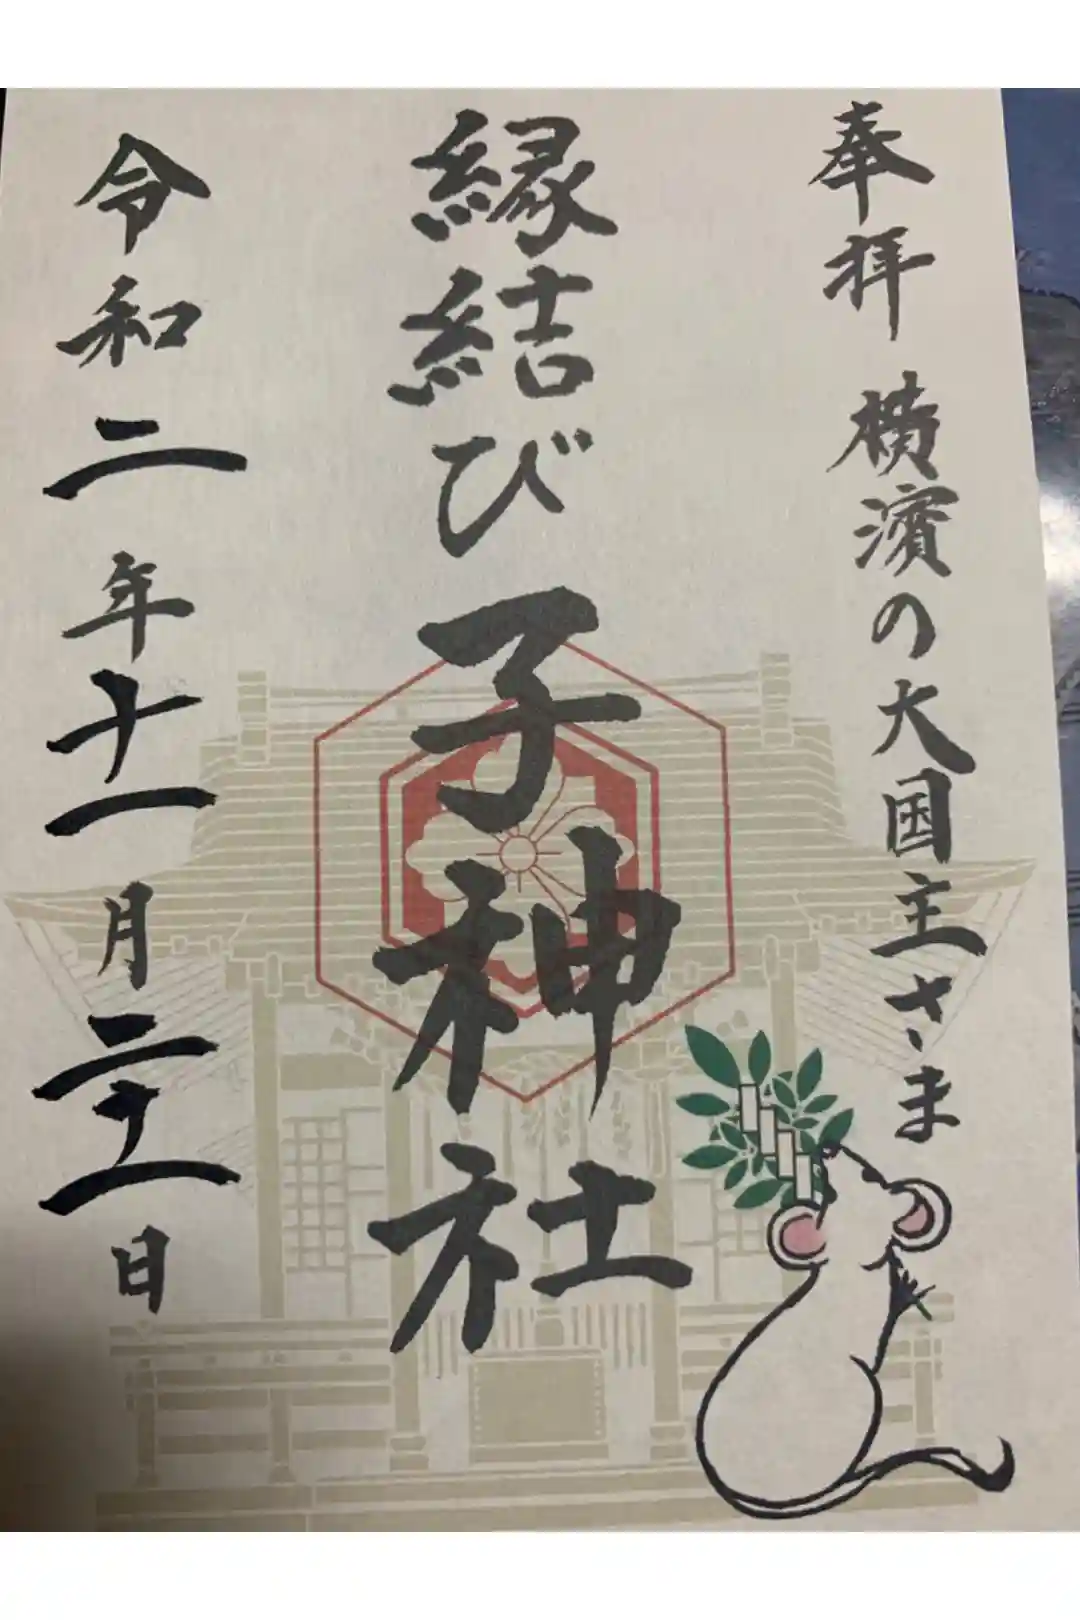 奉拝 横濱の大国主さま
縁結び 子神社
令和二年十一月二十一日